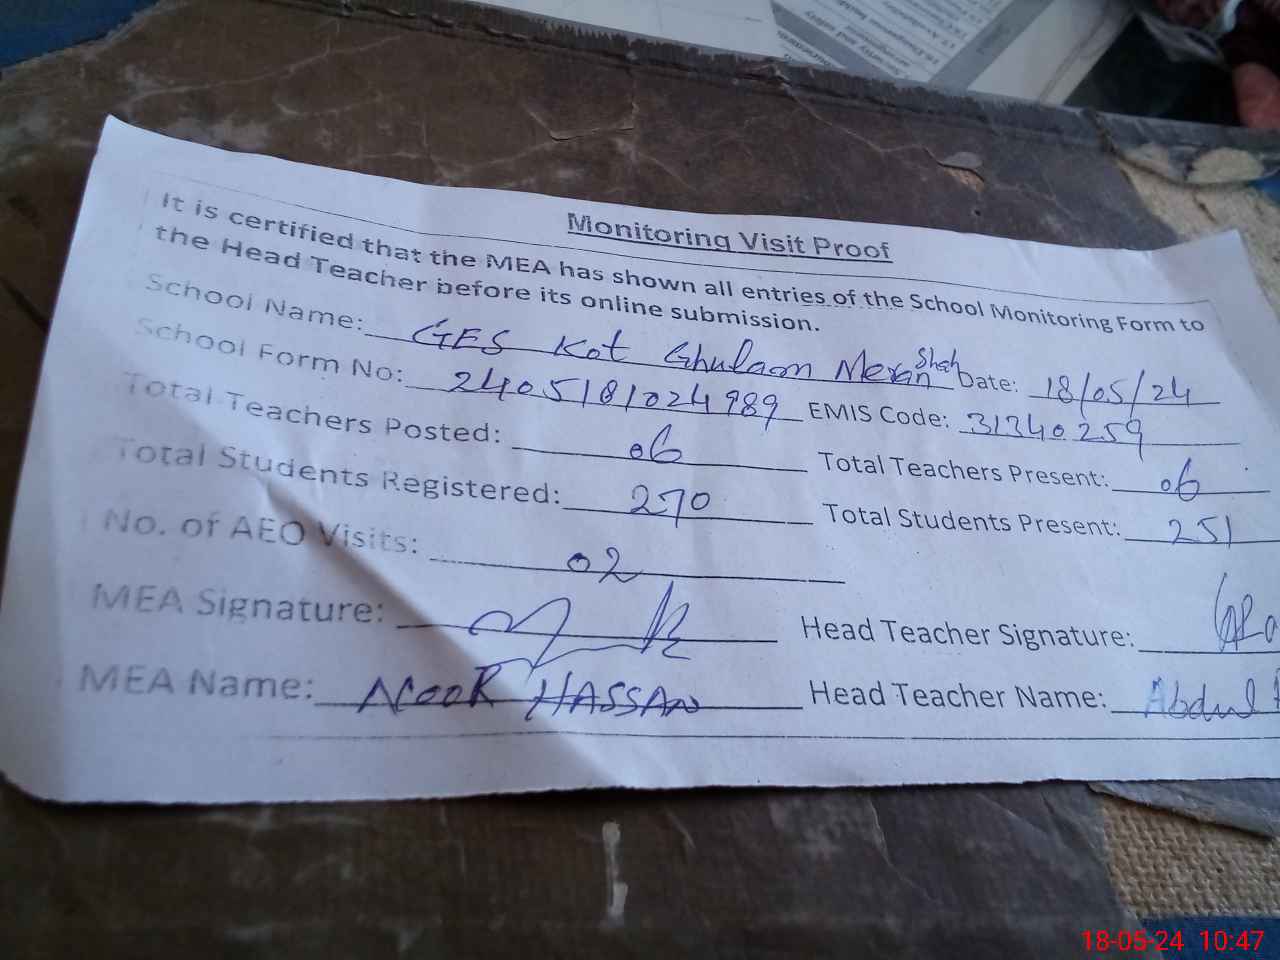 Monitoring Visit Proof
It is certified that the MEA has shown all entries of the School Monitoring Form to
the Head Teacher before its online submission.
School Name: GES Kot Ghulaam Meran Shah Date: 18/05/24
School Form No: 2405181024989 EMIS Code: 31340259
Total Teachers Posted: 06 Total Teachers Present: 06
Total Students Registered: 270 Total Students Present: 251
No. of AEO Visits: 02
MEA Signature: Head Teacher Signature:
MEA Name: NOOR HASSAN Head Teacher Name: Abdul
18-05-24 10:47